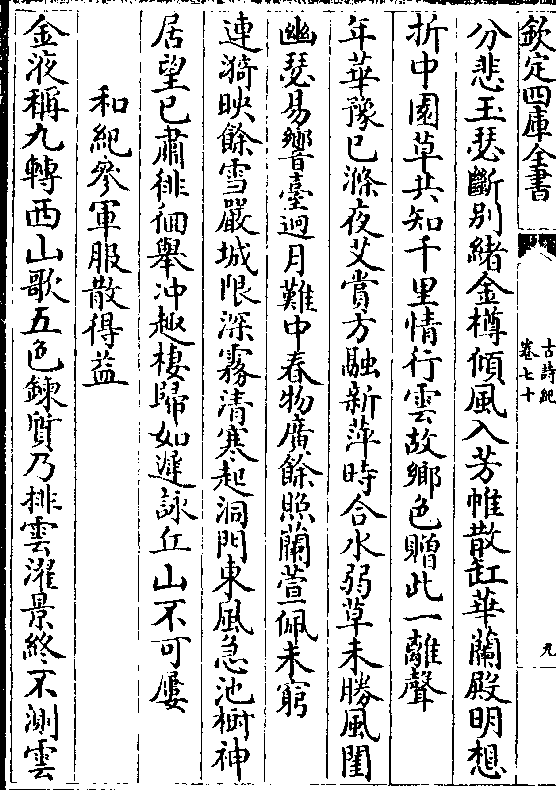 欽定四庫全書
古詩紀
卷七十
九
分悲玉瑟斷别緒金樽傾風入芳帷散缸華蘭殿明想
折中園草共知千里情行雲故鄉色贈此一離聲
年華豫已滌夜艾賞方融新萍時合水弱草未勝風閨
幽瑟易響臺迥月難中春物廣餘照蘭萱佩未窮
連漪映餘雪嚴城限深霧清寒起洞門東風急池樹神
居望已肅徘徊舉冲趣棲歸如遲詠丘山不可屢
和紀參軍服散得益
金液稱九轉西山歌五色鍊質乃排雲濯景終不測雲